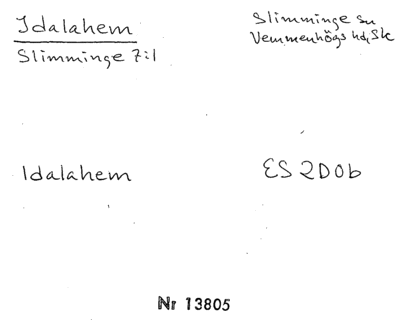 Idalahem
Slimminge 7:1
Slimminge sn
Vemmenhögs hd, Sk
Idalahem
ES 2D0b
Nr 13805